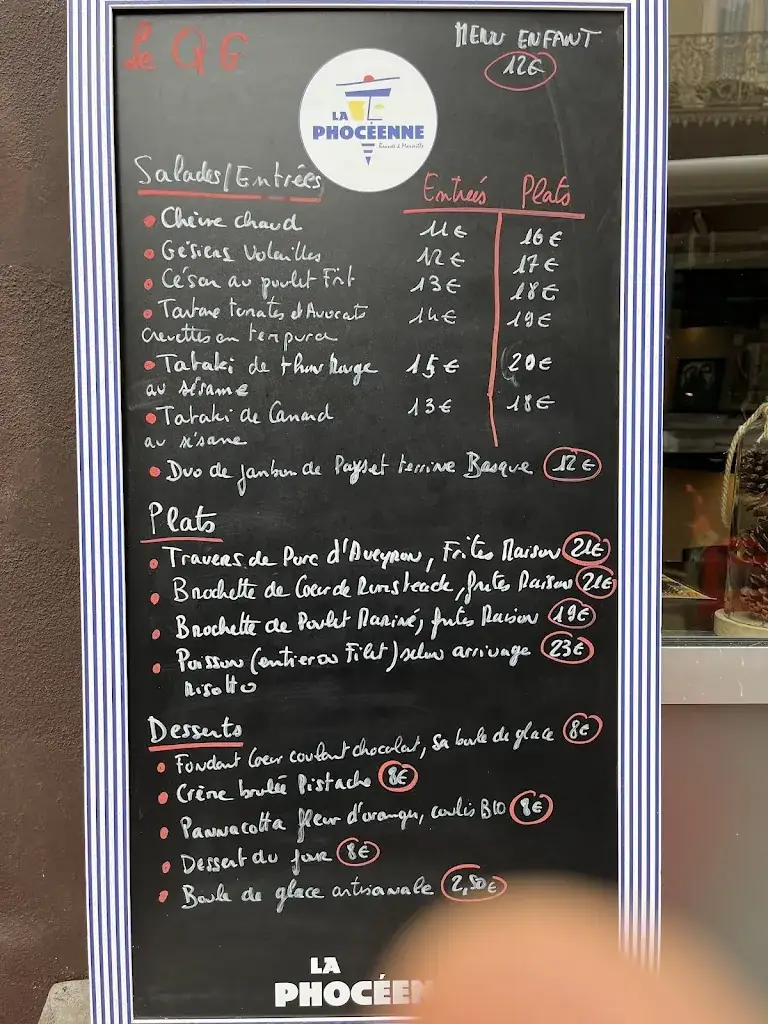 Le QG
MENU ENFANT
12€
LA
PHOCÉENNE
Salades/Entrées
Entrées Plats
Chèvre chaud 11€ 16€
Gésiers Volailles 12€ 17€
César au poulet Frit 13€ 18€
Tartare tomates et Avocats 14€ 19€
crevettes en tempura
Tataki de thon Rouge 15€ 20€
au sésame
Tataki de Canard 13€ 18€
au sésame
Duo de jambon de Pays et terrine Basque 12€
Plats
Travers de Porc d'Aveyron, Frites Maison 21€
Brochette de Coeur de Rumsteack, frites Maison 21€
Brochette de Poulet Mariné, frites Maison 19€
Poisson (entier ou Filet) selon arrivage 23€
Risotto
Desserts
Fondant Coeur coulant chocolat, sa boule de glace 8€
Crème brulée Pistache 8€
Pannacotta fleur d'oranger, coulis BIO 8€
Dessert du jour 8€
Boule de glace artisanale 2,50€
LA
PHOCÉEN